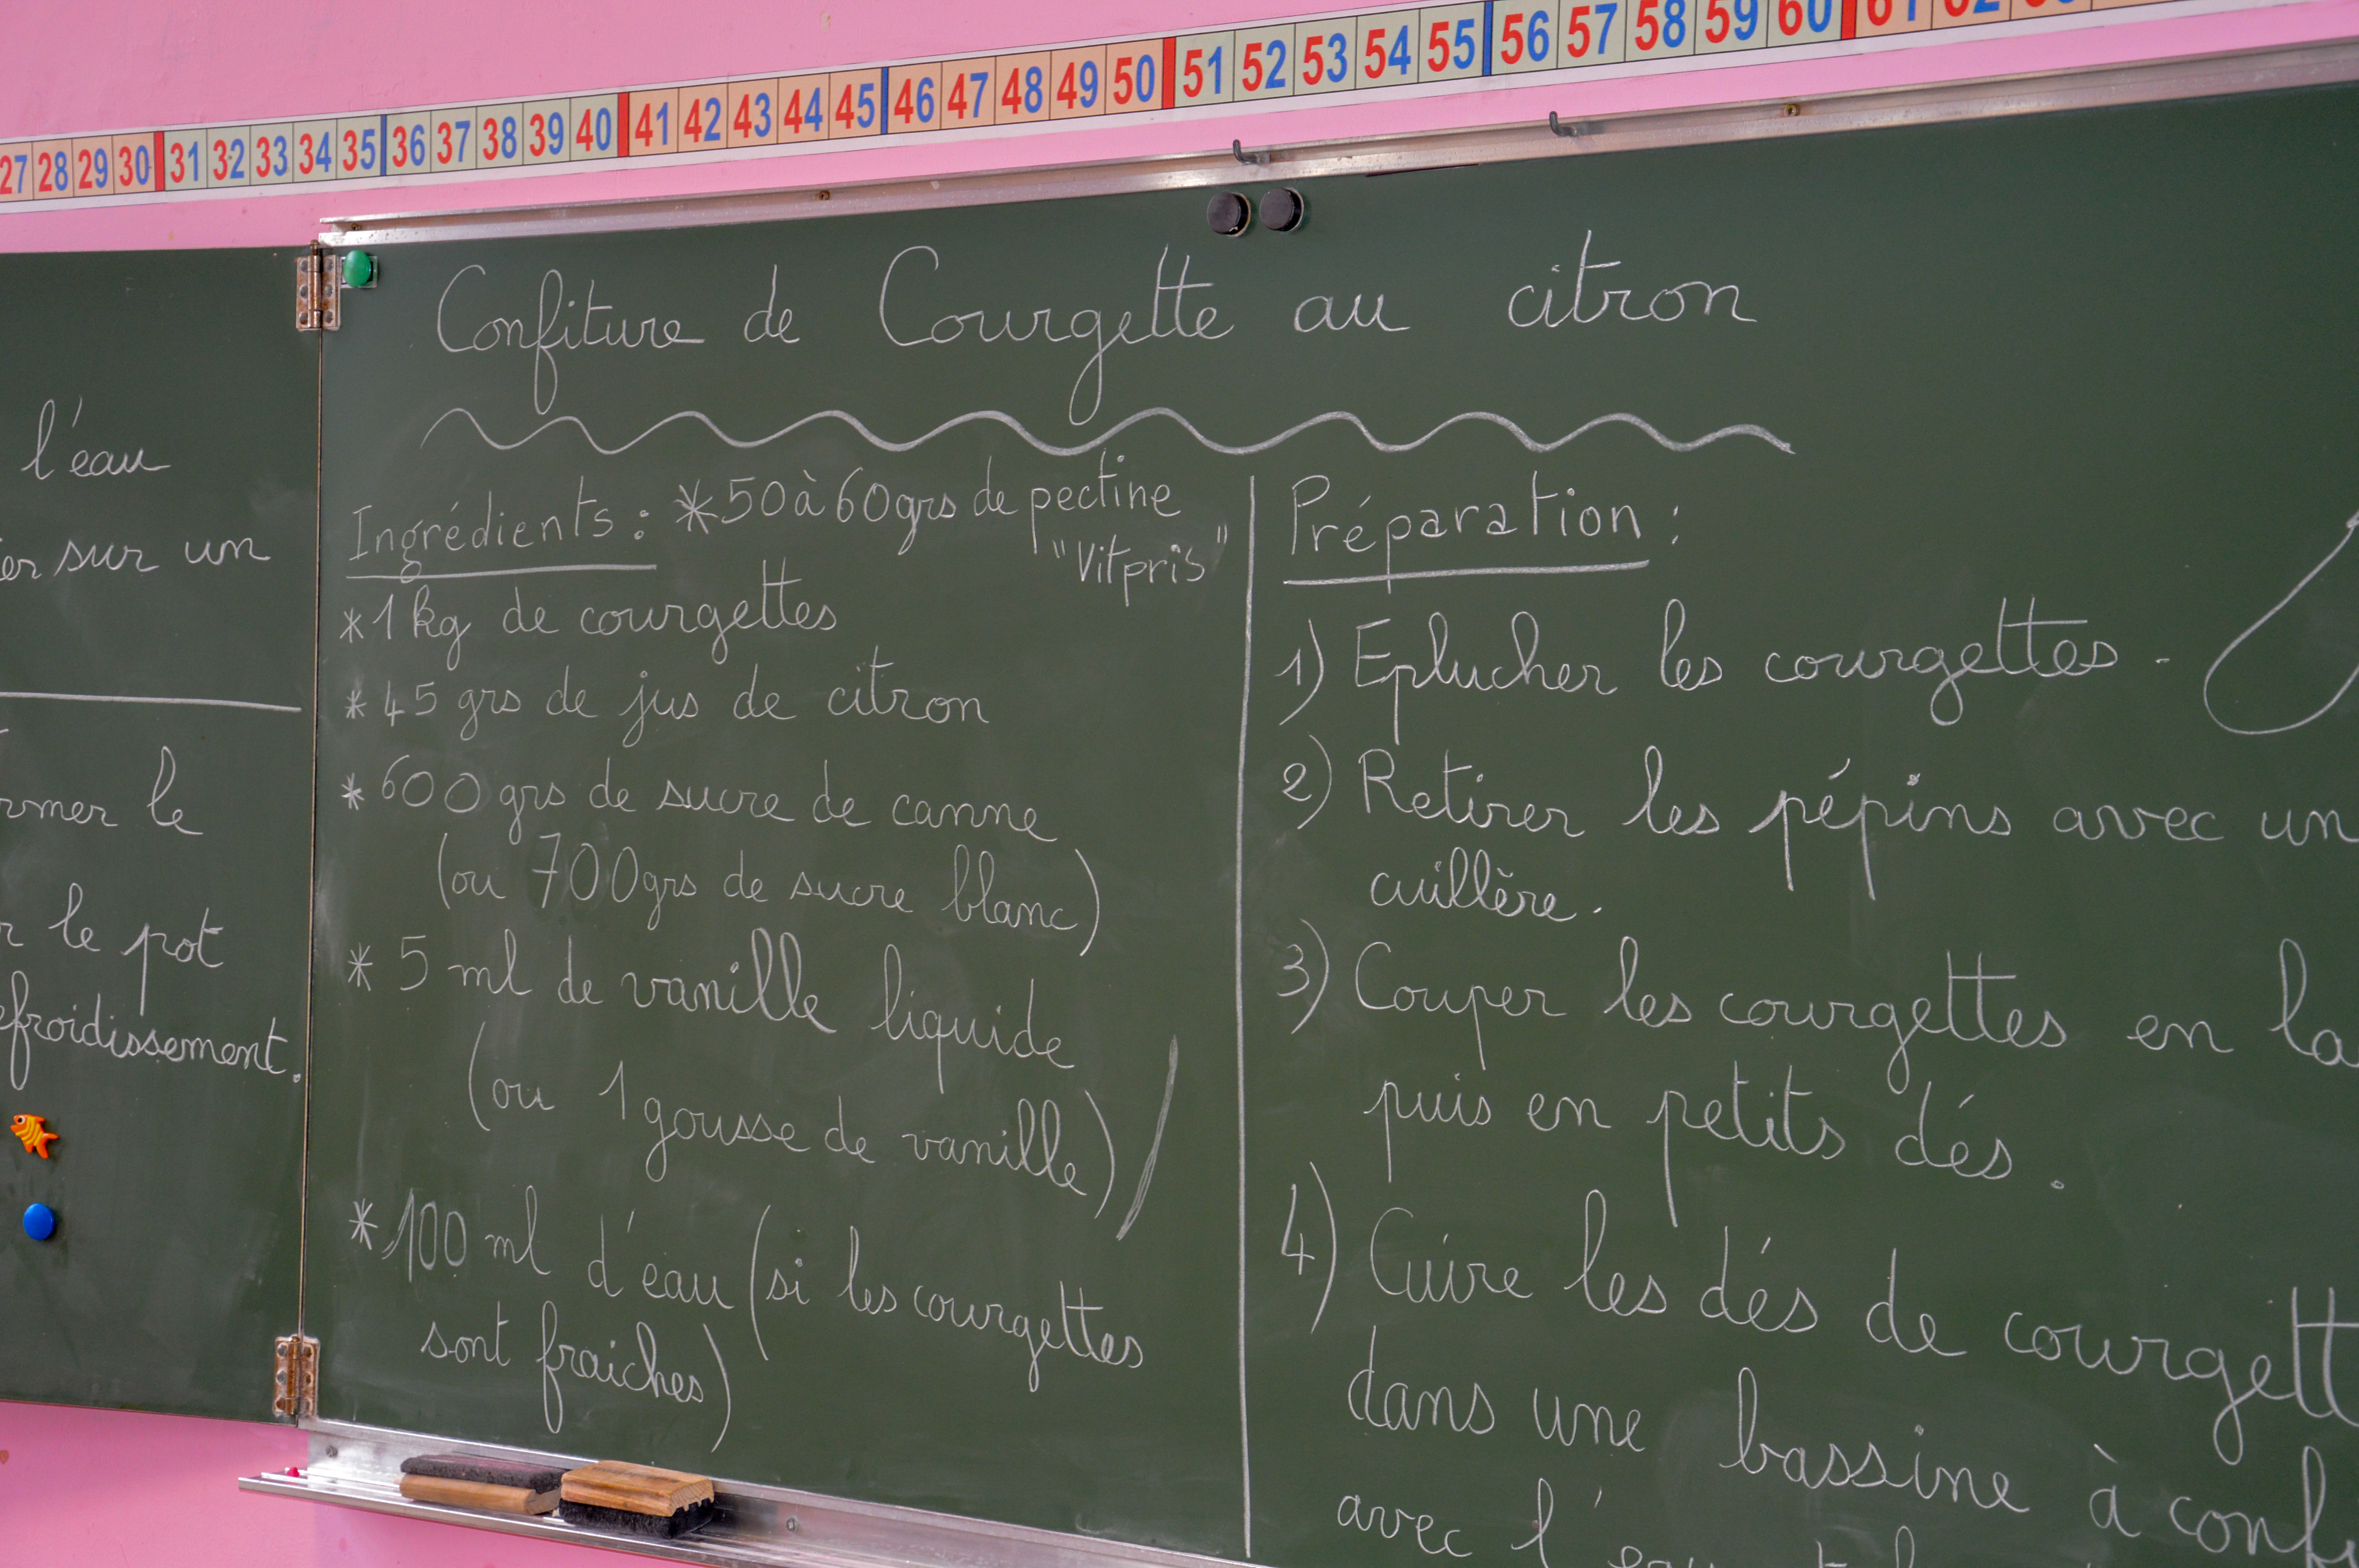 27 28 29 30 31 32 33 34 35 36 37 38 39 40 41 42 43 44 45 46 47 48 49 50 51 52 53 54 55 56 57 58 59 60 61
l'eau
sur un
le
le pot
Confiture de Courgette au citron
Ingrédients : *50 à 60grs de pectine
"Vitpris"
*1kg de courgettes
*45 grs de jus de citron
*600 grs de sucre de canne
(ou 700grs de sucre blanc)
* 5 ml de vanille liquide
(ou 1 gousse de vanille)
*100 ml d'eau (si les courgettes
sont fraiches)
Préparation :
1) Eplucher les courgettes.
2) Retirer les pépins avec un
cuillère.
3) Couper les courgettes en la
puis en petits dés.
4) Cuire les dés de courgett
dans une bassine à conf
avec l'